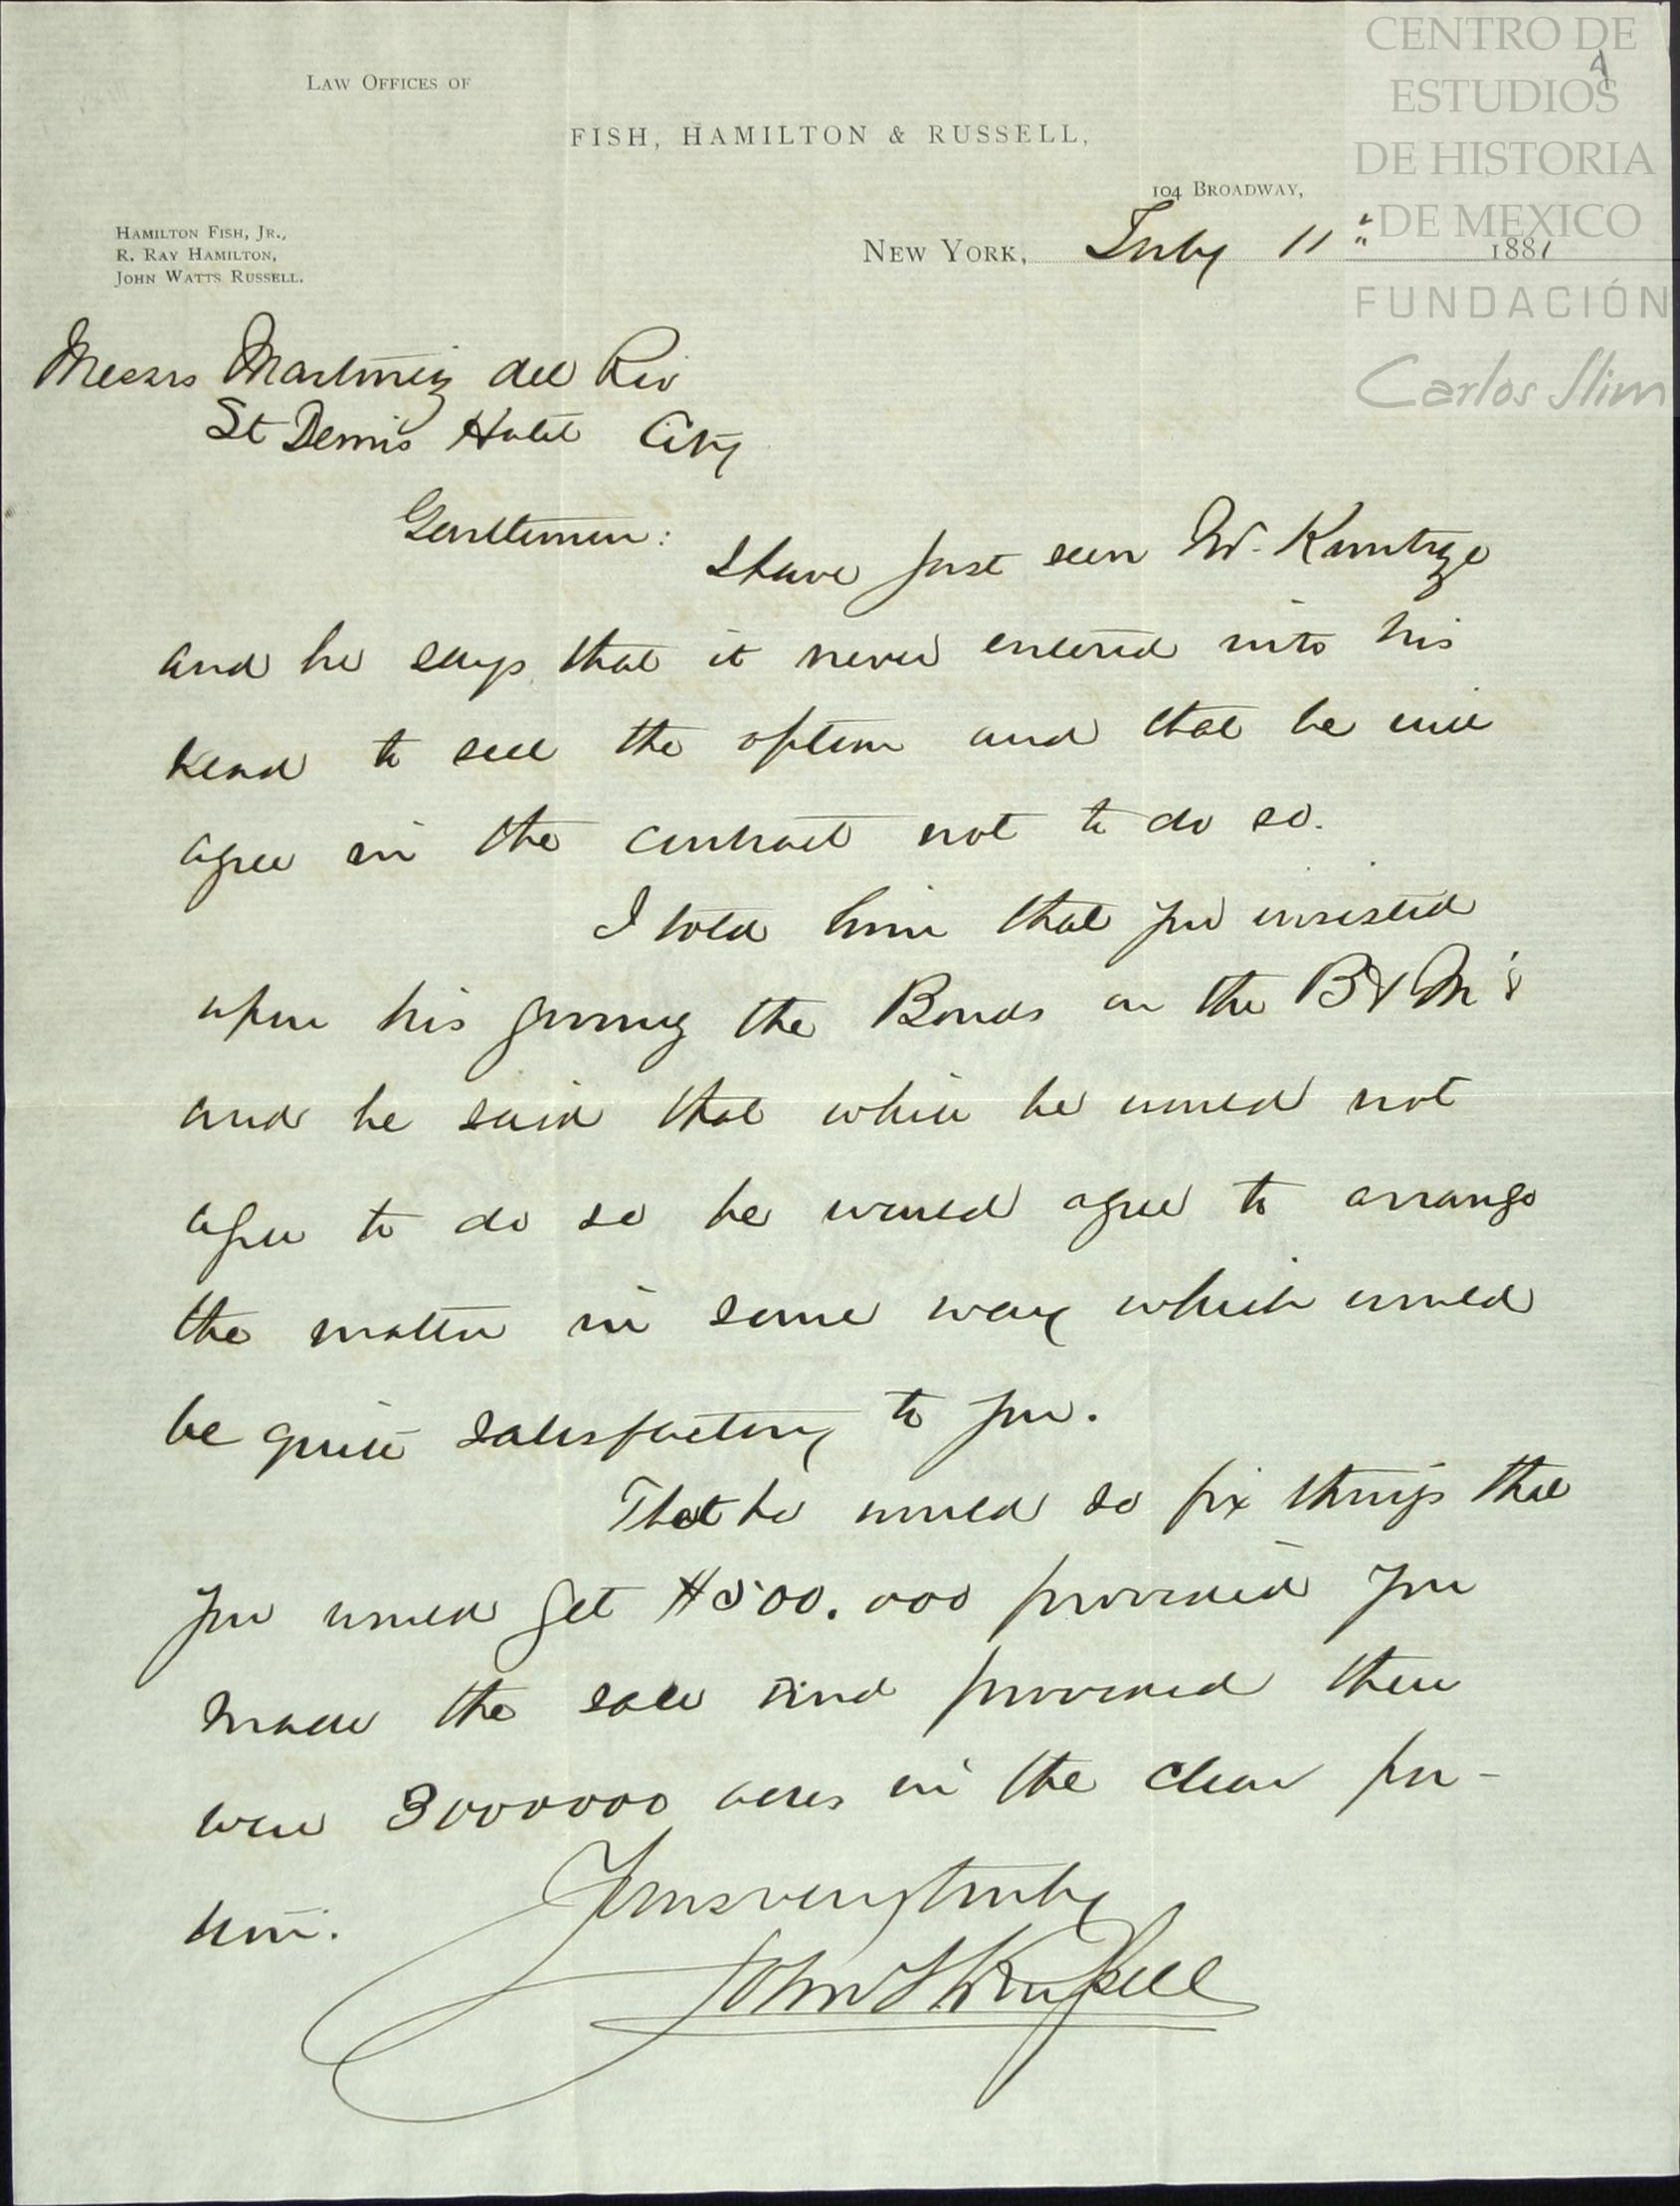 CENTRO DE
ESTUDIOS
DE HISTORIA
DE MEXICO
FUNDACIÓN
Carlos Slim
4
LAW OFFICES OF
FISH, HAMILTON & RUSSELL,
104 BROADWAY,
HAMILTON FISH, JR.,
R. RAY HAMILTON,
JOHN WATTS RUSSELL.
NEW YORK, July 11" 1881
Messrs Martinez del Rio
St Denis Hotel City
Gentlemen: I have just seen Mr. Kuntze
and he says that it never entered into his
head to sell the option and that he will
agree in the contract not to do so.
I told him that you insisted
upon his giving the Bonds on the B & M's
and he said that while he would not
agree to do so he would agree to arrange
the matter in some way which would
be quite satisfactory to you.
That he would so fix things that
you would get $500.000 provided you
made the sale and provided there
were 3000000 acres in the clear for
him.
Yours very truly
John W Russell